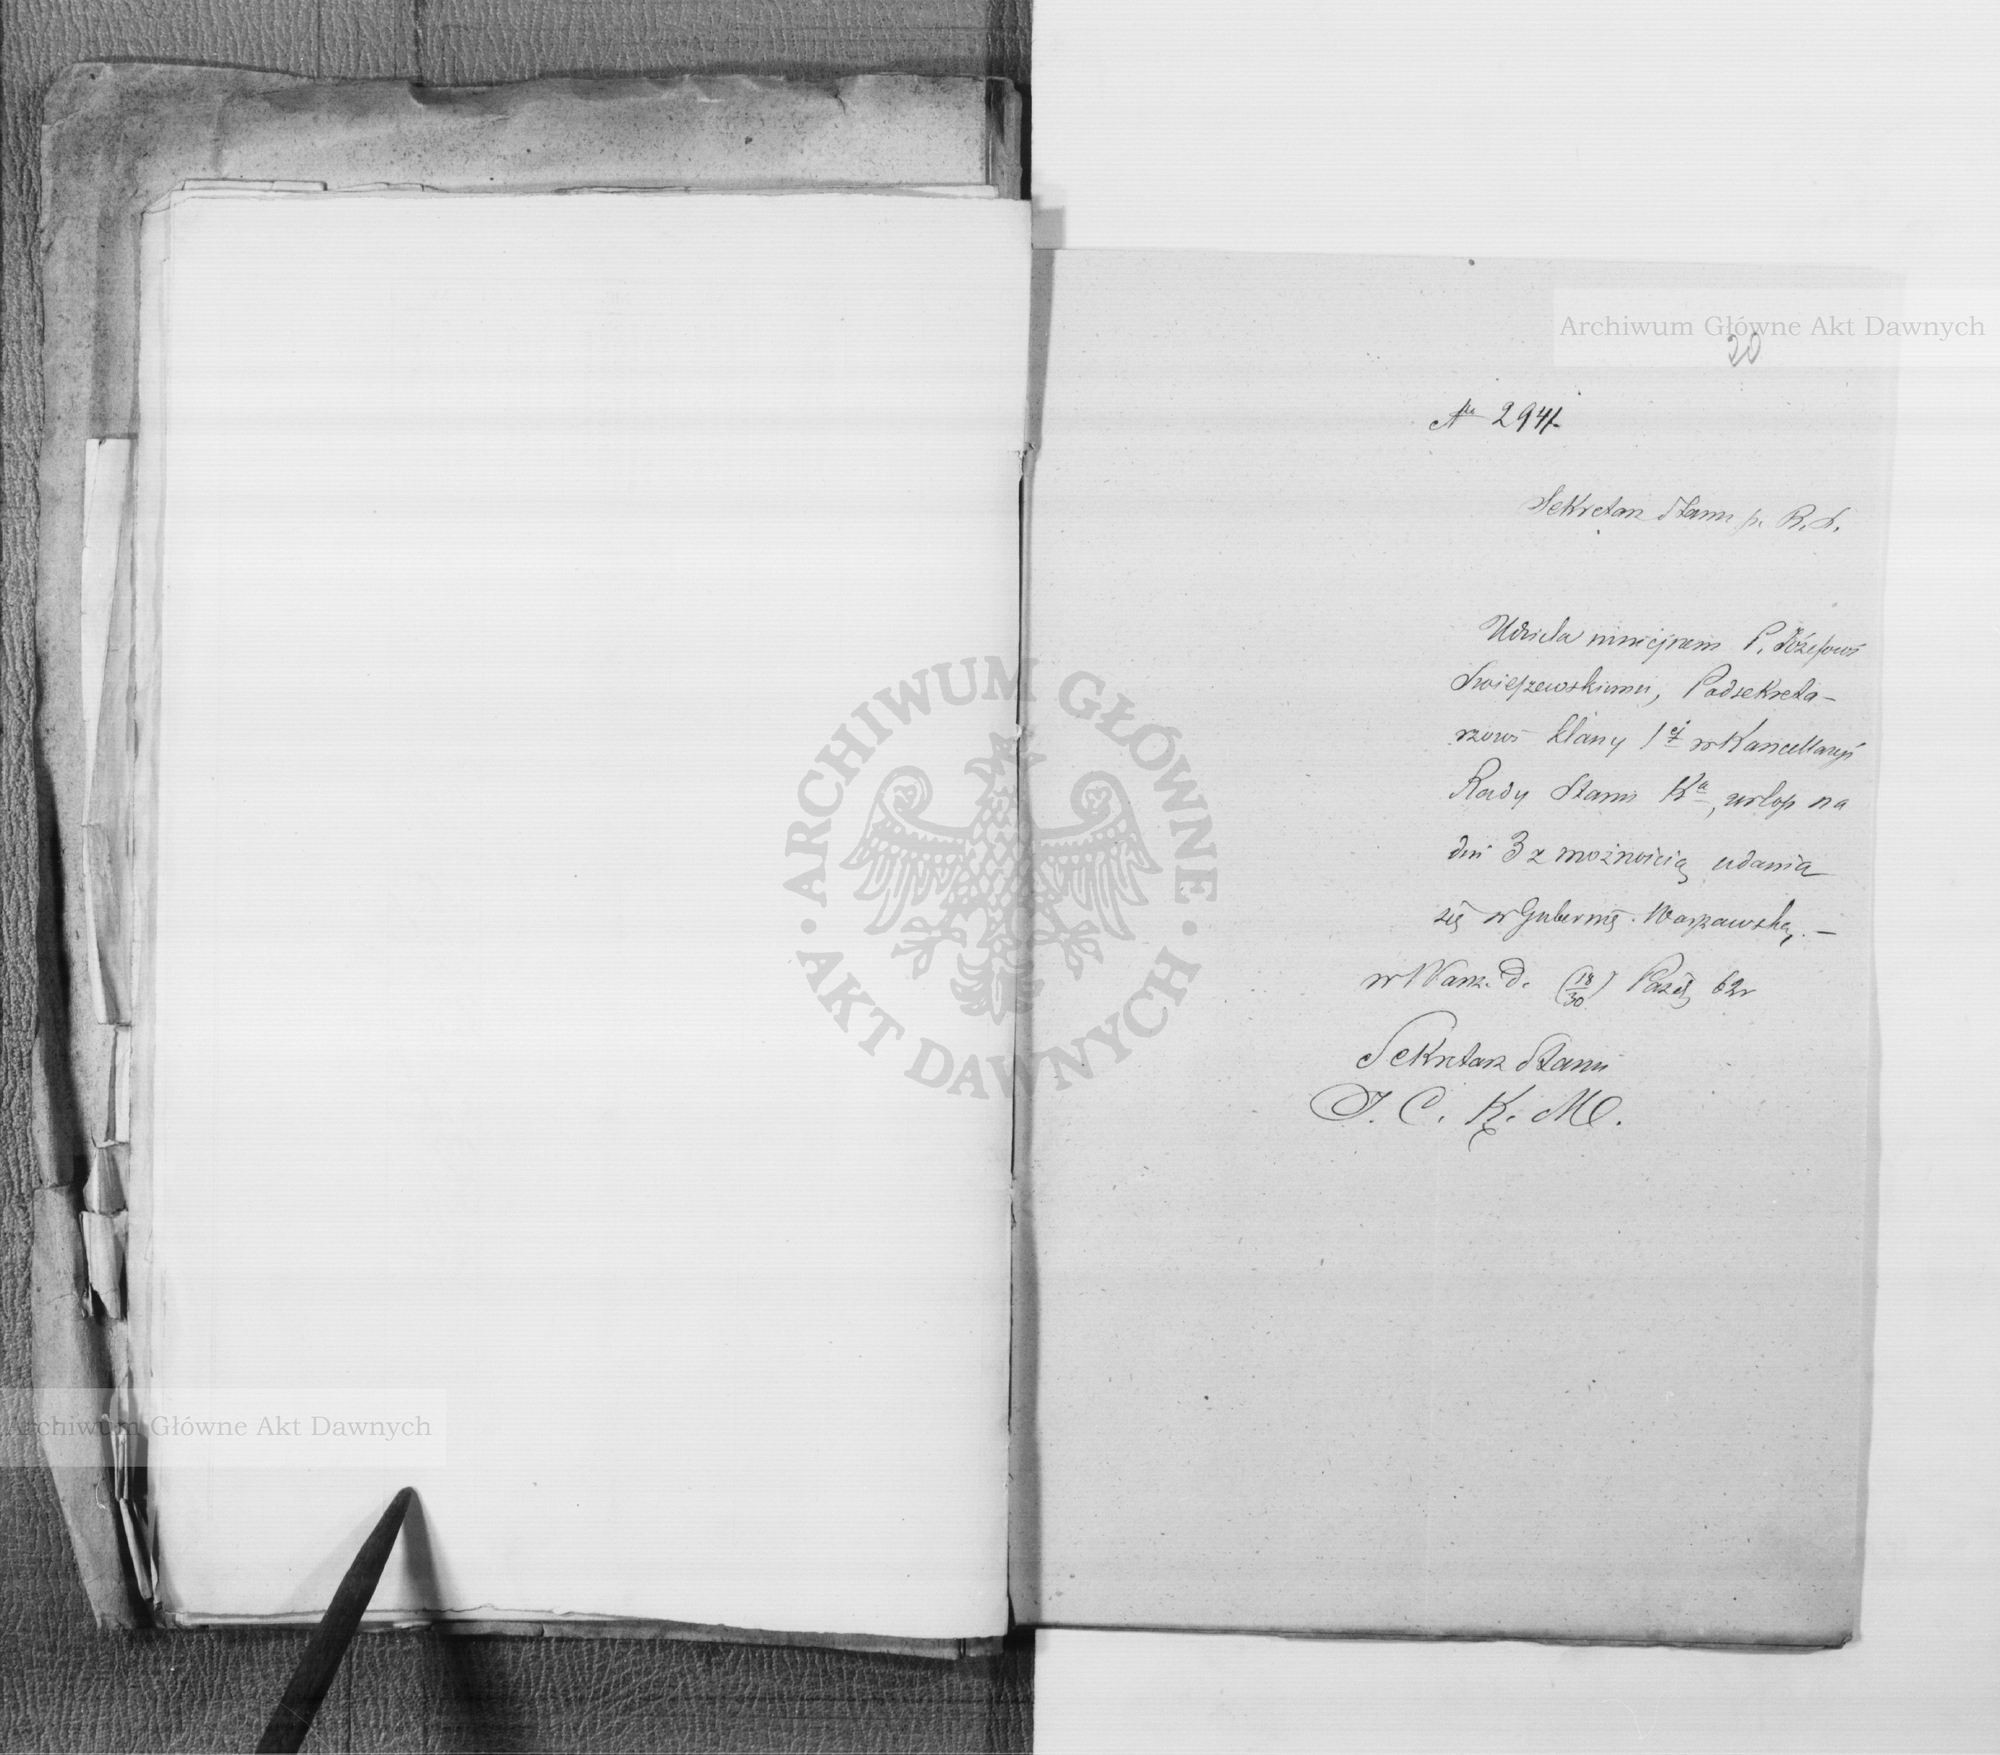 Archiwum Główne Akt Dawnych
20
№ 2941.
Sekretarz Stanu p. R. S.
Udziela niniejszem P. Józefowi
Swieszewskiemu, Podsekreta-
rzowi klassy 1ej w Kancellaryi
Rady Stanu Kr, urlop na
dni 3 z możnością udania
się w Gubernię Warszawską. –
w Warsz. d. (18/30) Paźdz 62r
Sekretarz Stanu
J. C. K. M.
ARCHIWUM GŁÓWNE
· AKT DAWNYCH ·
Archiwum Główne Akt Dawnych